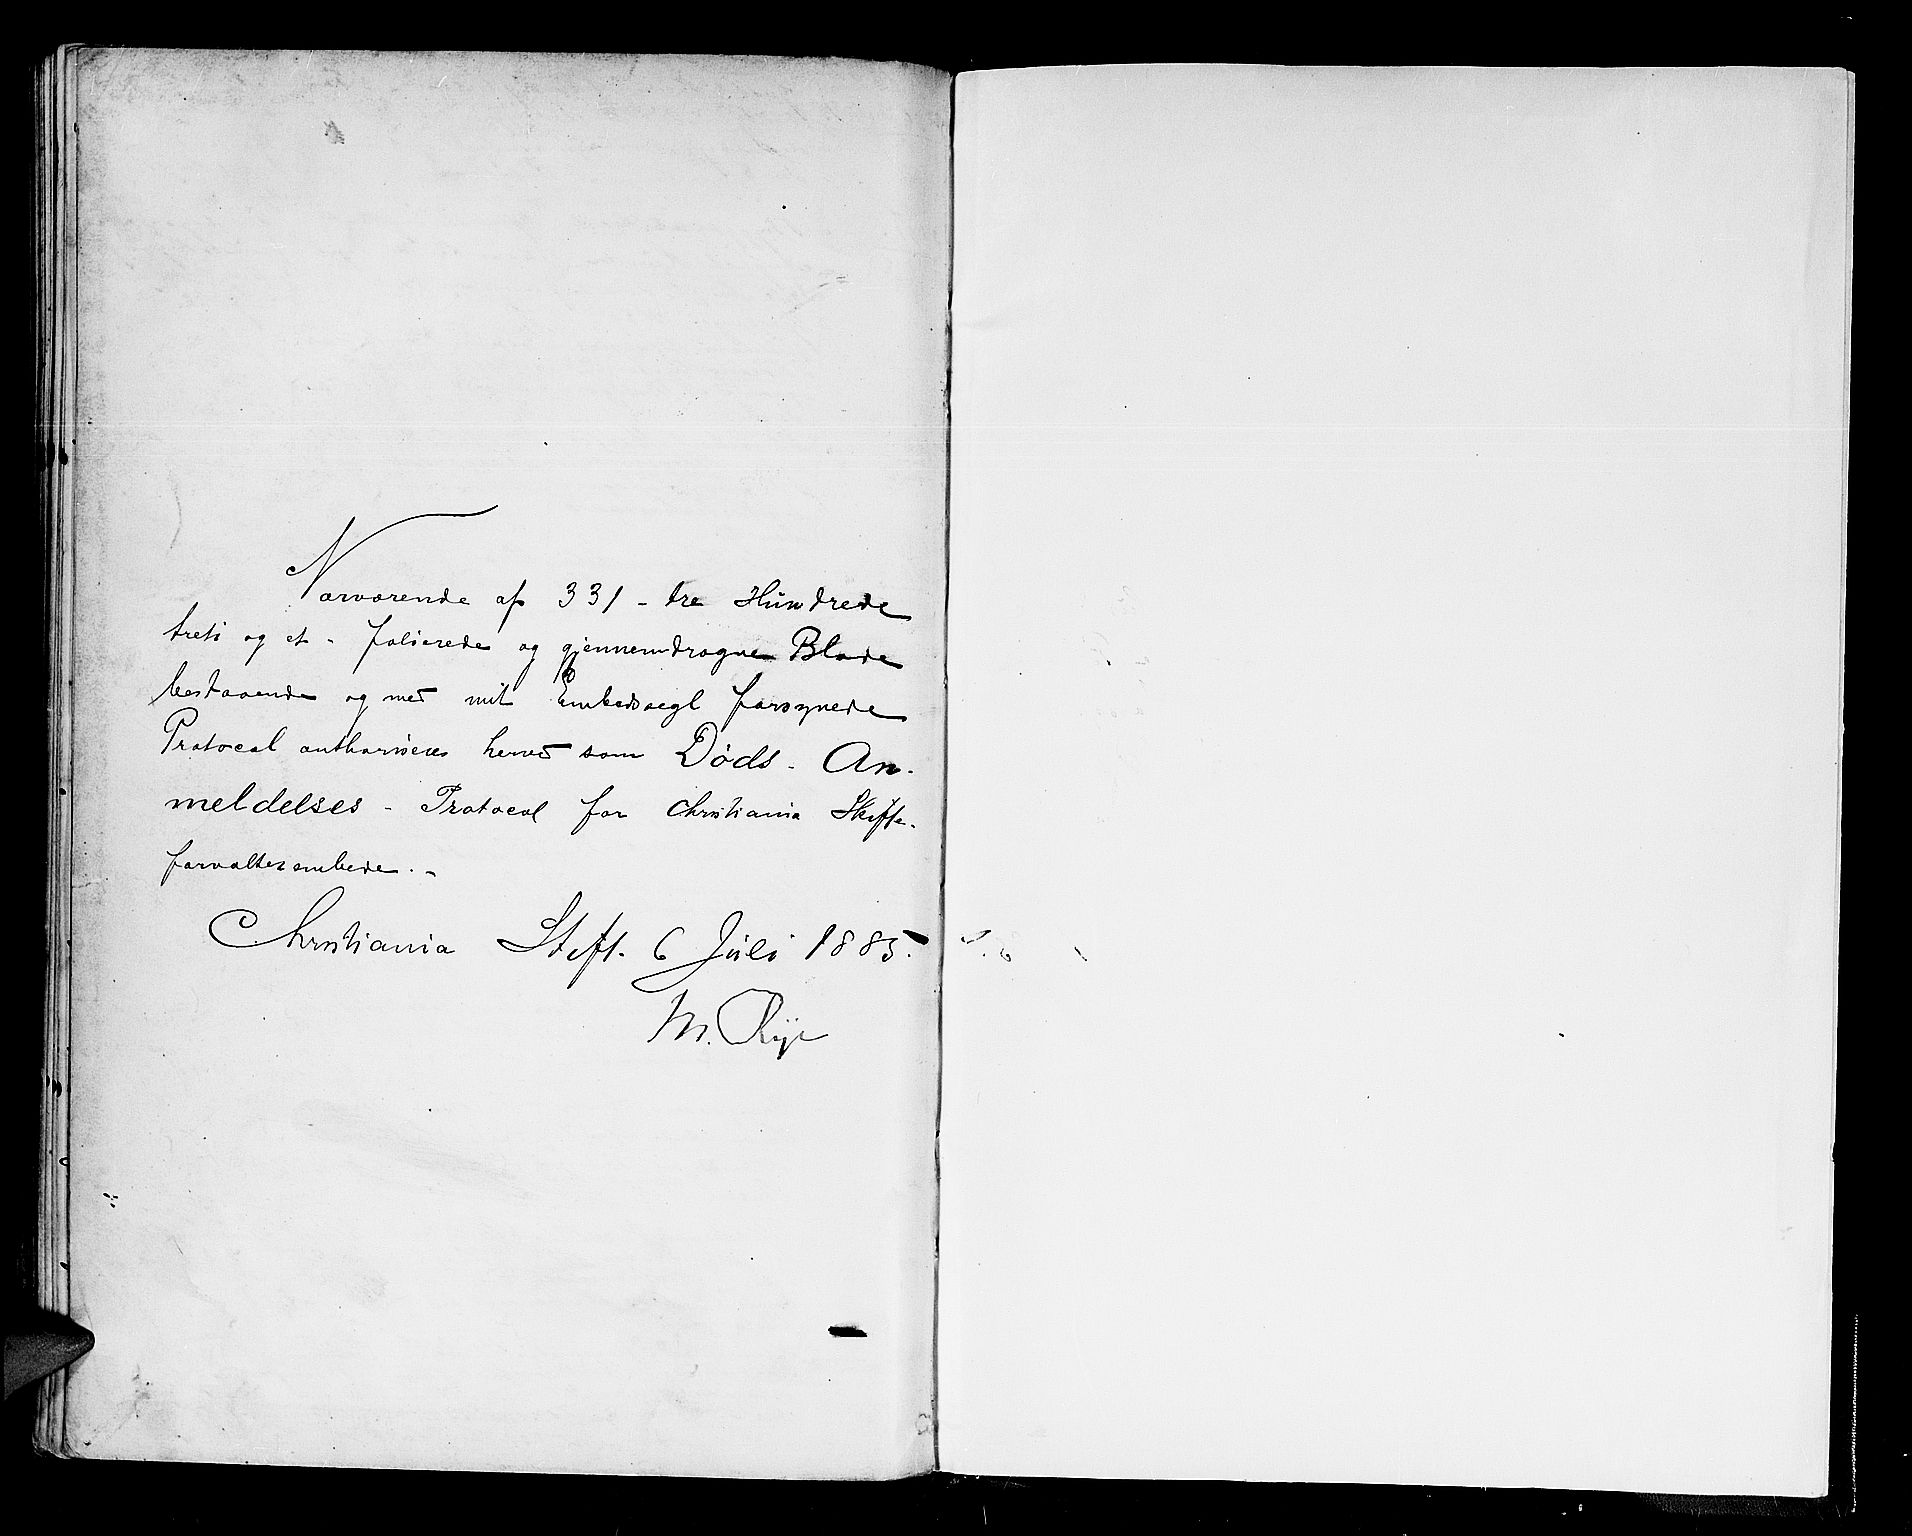 Nærværende af 331 - tre Hundrede
treti og et - folierede og gjennemdragne Blade
bestaaende og med mit Embedssegl forsynede
Protocol authoriseres herved som Døds- An-
meldelses - Protocol for Christiania Skifte-
forvalterembede. -
Christiania Stift. 6 Juli 1885.
M. Rye